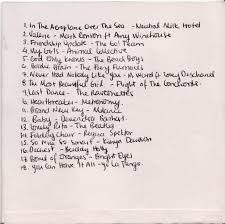 1. In the Aeroplane Over The Sea - Neutral Milk Hotel
2. Valerie - Mark Ronson ft Amy Winehouse
3. Friendship Update - The Go! Team
4. My Girls - Animal Collective
5. God Only Knows - The Beach Boys
6. Golden Brown - The
7. Never Had Nobody Like You - M. Ward ft Zooey Deschanel
8. The Most Beautiful Girl - Flight of the Conchords.
9. Last Dance - The Raveonettes
10. Heartbreaker - Metronomy.
11. Brand New Key - Melanie
12. Baby - Devendra Banhart.
13. Lovely Rita - The Beatles
14. Folding Chair - Regina Spektor
15. So Mine So Sonart - Kenya Dewith
16. Dearest - Buddy Holly
17. Bowl of Oranges - Bright Eyes
18. You Can Have It All - Yo La Tengo.